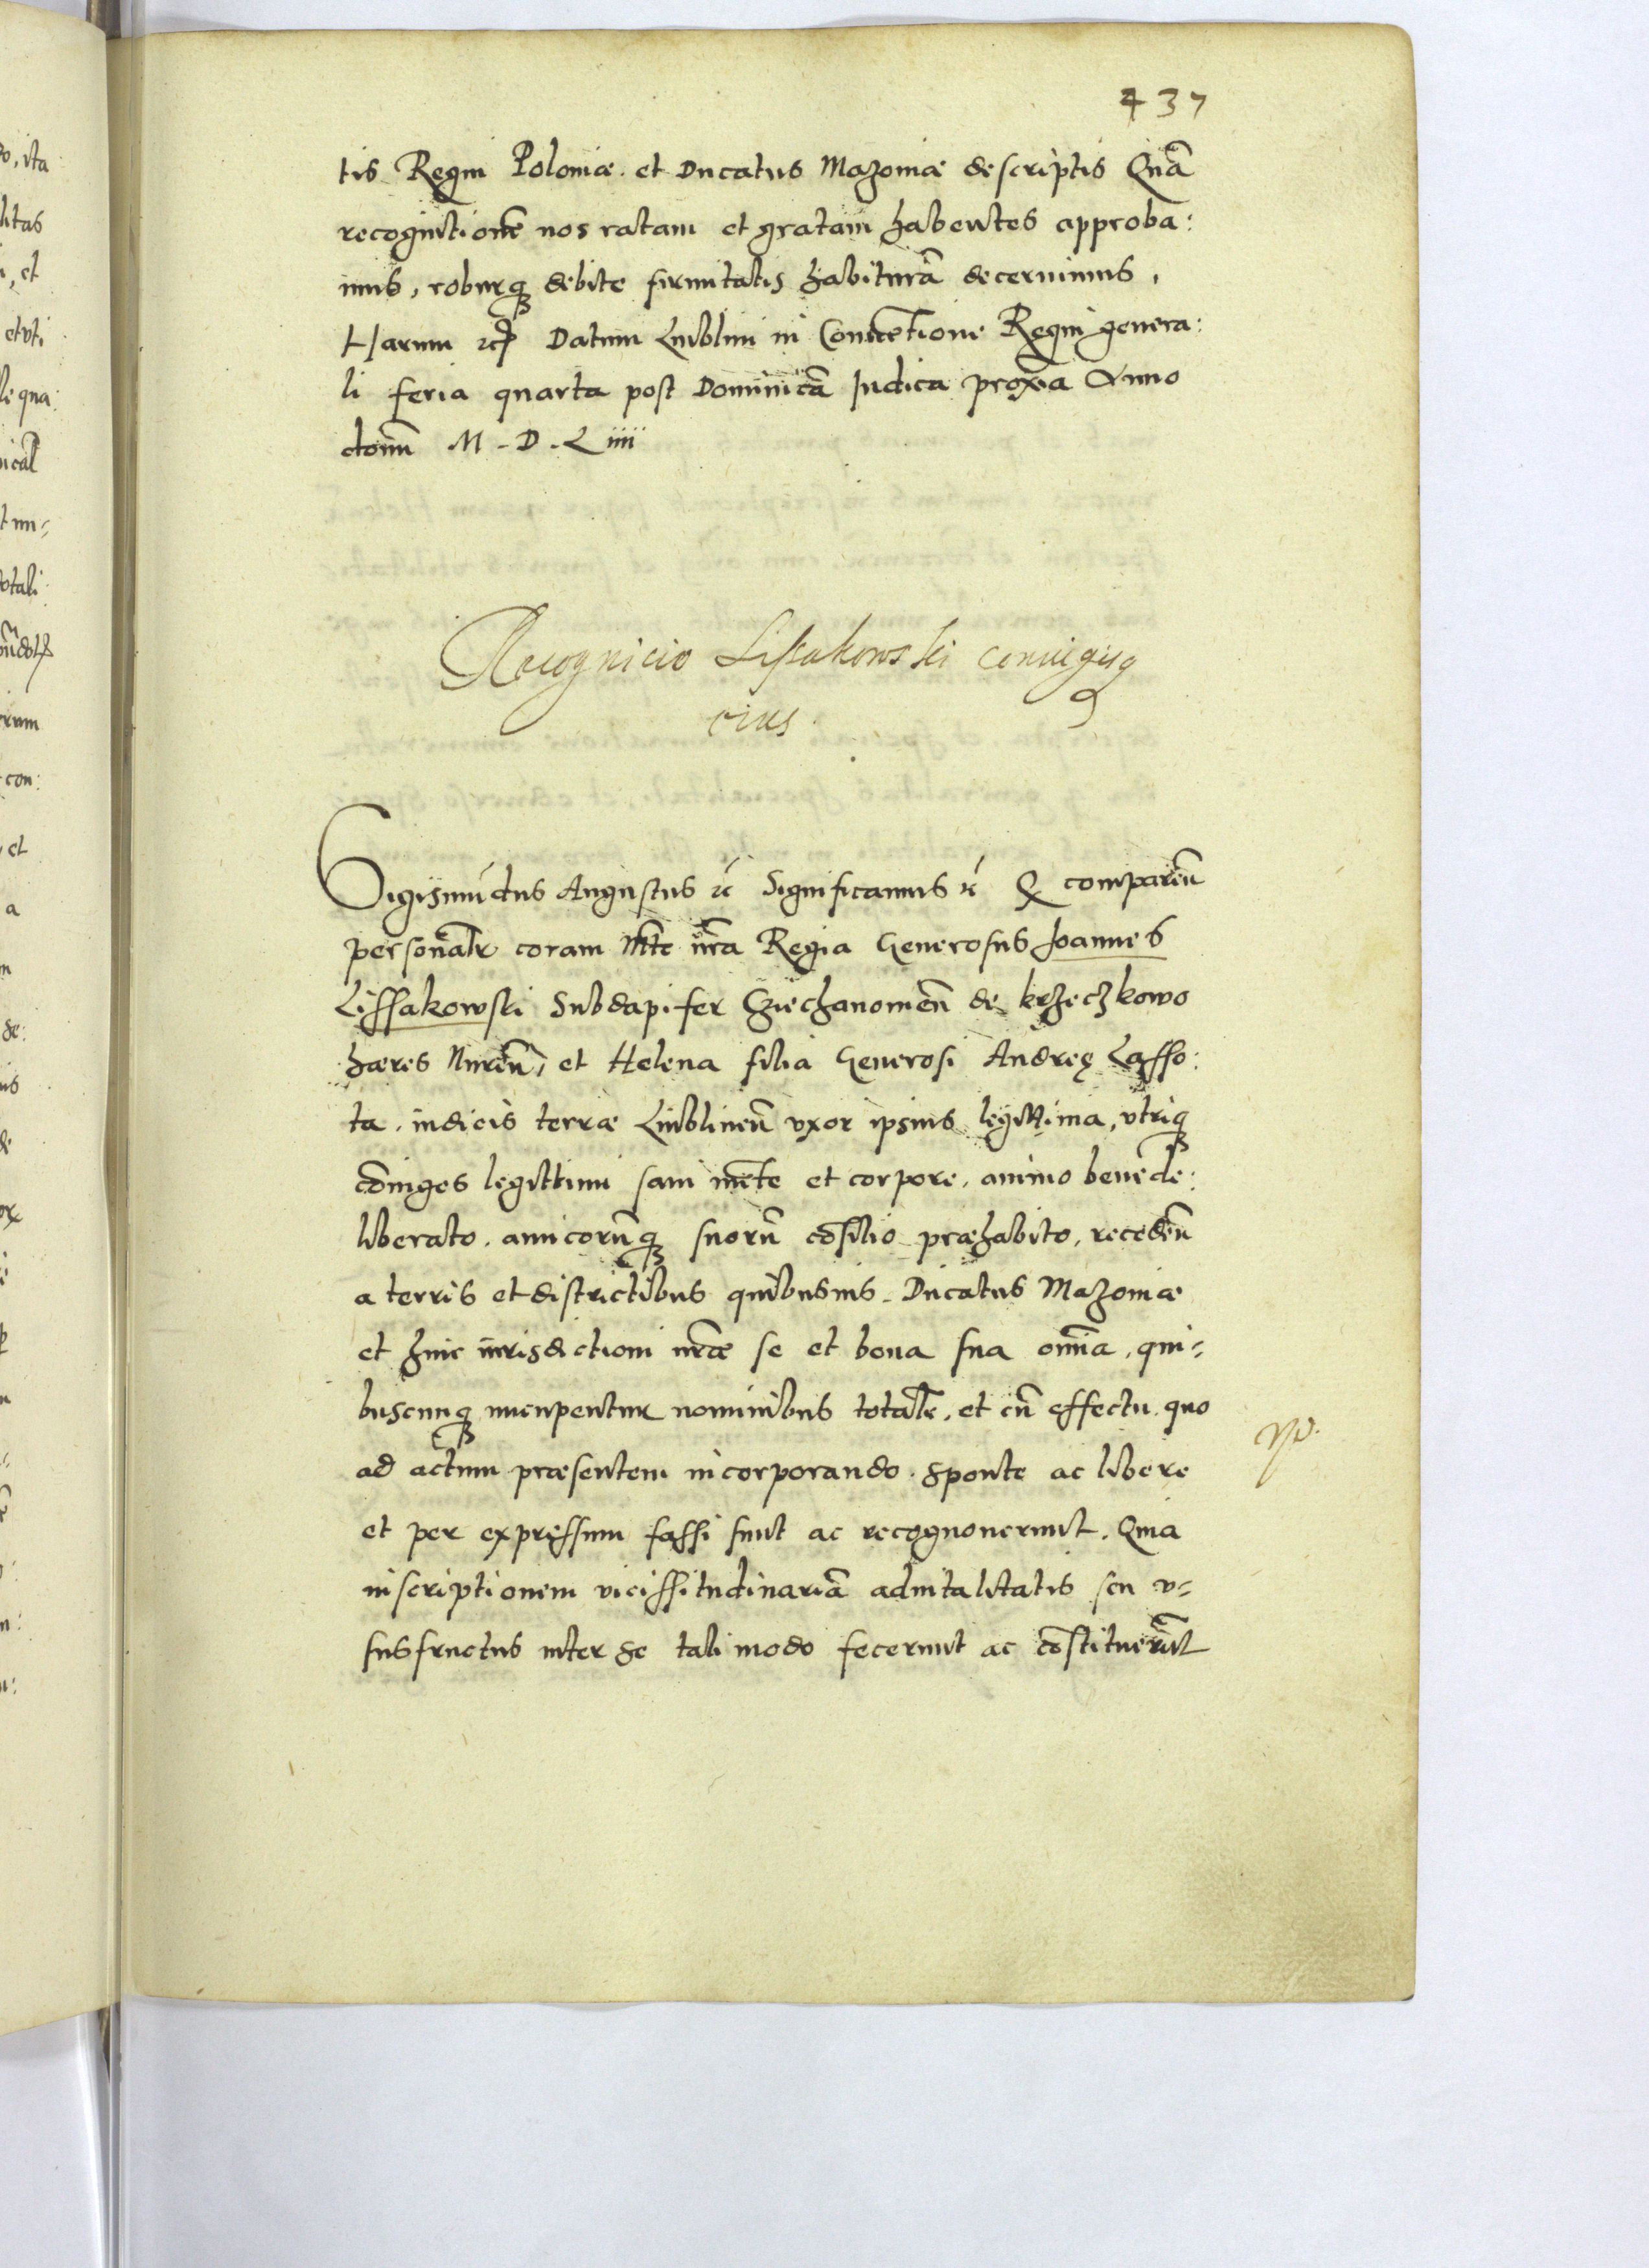 437
tis Regni Poloniæ. et Ducatus Mazoniæ descriptis Quā
recognitionē nos ratam et gratam habentes approba:
mus, roburq́ꝫ debite firmitatis habiturā decernimus,
Harum ꝛcꝭ Datum Lublini in Conuētione Regni genera:
li feria quarta post Dominicā Iudica proxīa Anno
domī M. D. Liiii
Recognicio Lissakowski coniugisq
eius.
Sigismūdus Augustus ꝛć Significamus ꝛć Q comparēn
personalr̄ coram Mtte nrā Regia Generosus Joannes
Lissakowski Subdapifer Cziechanomeñ de krzeczkowo
hæres Nureñ, et Helena filia Generosi Andreę Lasso:
ta. iudicis terræ Lublineñ vxor ipsius legittima, vtriq́ꝫ
cōiuges legittimi sani mēte et corpore, animo bene de:
liberato. amicorūq́ꝫ suorū cōsilio præhabito, recedēn
a terris et districtibus quibusuis. Ducatus Mazoniæ
et huic iurisdictioni nrǣ se et bona sua omīa, qui-
buscunq́ꝫ nucupentur nominibus totalr̄, et cū effectu. quo
ad actum præsentem incorporando. Sponte ac libere
et per expressum fassi sunt ac recognouerunt. Quia
inscriptionem vicissitudinariā aduitalitatis seu v-
susfructus inter se tali modo fecerunt ac cōstituerūt